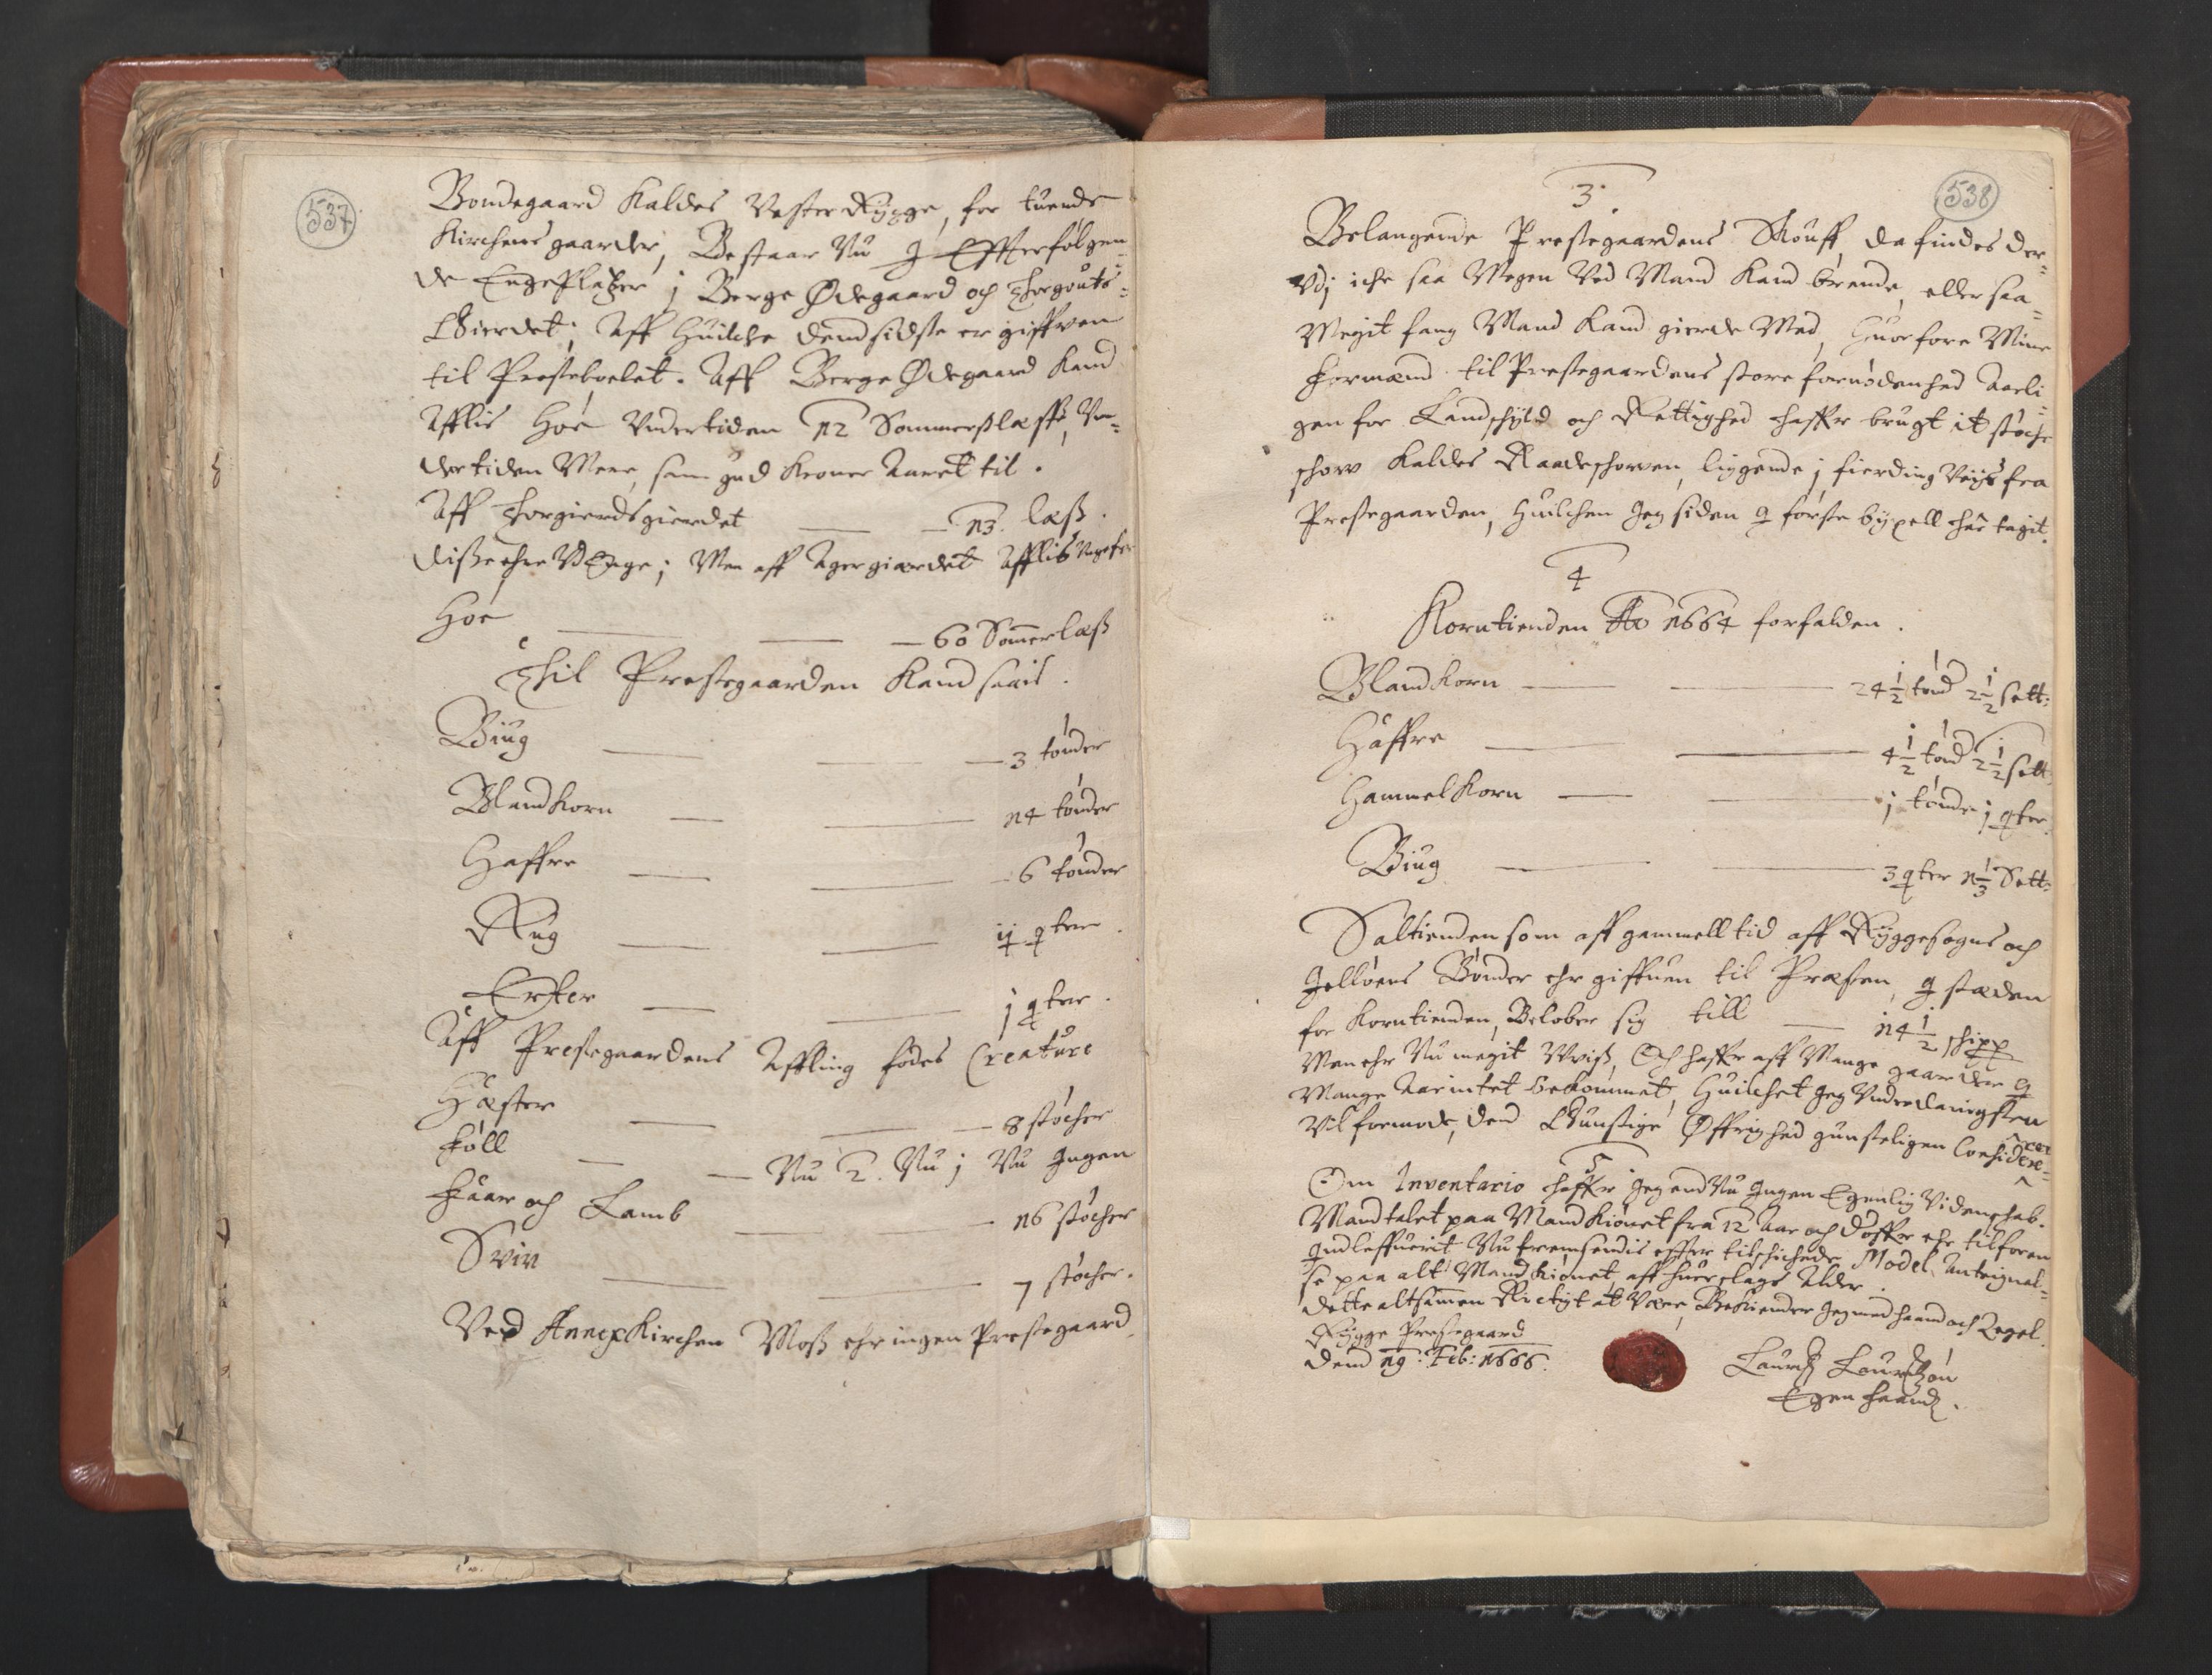 537
Bondegaard Kaldes Vester Rygge, for tuende
Kirchens gaarder, Bestaar Nu J Effterfølgen-
de EngePlatzer j Berge Ødegaard och Thorgouts-
Gierdet; Aff Huilche dend sidste er giffven
til Prestebolet. Aff Berge Ødegaard Kand
Afflis Høe Undertiden 12 Sommerßlæsse, Un-
dertiden Mere, som gud Kroner Aaret til.
Aff Thorgierdsgierdet 13 læß.
Disse ehre UdEnge; Men aff Agergiærdet Afflis
Høe 60 Somerlæß
Thil Prestegaarden Kand saais.
Biug 3 tønder
Blandkorn 14 tønder
Haffre 6 tønder
Rug ij qter.
Erter j qter.
Aff Prestegaardens Affling fødes Creature
Hæster 8 støcher
Føll Nu 2. Nu j Nu Jngen
Faar och Lamb 16 støcher
Sviin 7 støcher.
Ved AnnexKirchen Moß ehr ingen Prestegaard.
538
3.
Belangende Prestegaardens Skouff, da findes der-
Udj iche saa Megen Ved Mand Kand brende, eller saa-
Megit fang Mand Kand gierde Med, Huorfore Mine
Formænd til Prestegaardens store fornødenhed Aarli-
gen for Landschyld och Rettighed haffr brugt it støche
schow Kaldes Raadeschowen, liggende j fierding Veijs fra
Prestegaarden, Huilchen Jeg siden J første byxell har tagit.
4
Korntienden Ao 1664 forfalden.
Blandkorn 24 1/2 tønd 2 1/2 sett:
Haffre 4 1/2 tønd 2 1/2 sett
Hammelkorn j tønde j qter.
Biug 3 qter 1 1/3 Sett:
Saltienden som aff gammell tid aff Ryggesogns och
Jelløens Bønder ehr giffuen til Præsten, J stæden
for Korntienden, Beløber sig till 14 1/2 schipp
Men ehr Nu megit Uviß, Och haffr aff Mange gaarder J
Mange Aar intet bekommet, Huilchet Jeg Underdanigsten
Vil formode, dend Gunstige Øffrighed gunsteligen Considere-
rer
5
Om Inventario haffr Jeg end Nu Jngen Egenlig Videnschab.
Mandtalet paa Mandkiønet fra 12 Aar och Doffr ehr tilforen
Jndleffuerit Nu fremsendis effter tilschichede Model, Anteignel-
se paa alt Mandkiønet, aff huerslags Alder.
Dette altsammen Rictigt at Vere, Bekiender Jeg med haand och Zegel.
Rygge Prestegaard
Dend 19: Feb: 1666.
Laurdz Laurdtzøn
Egen haand.